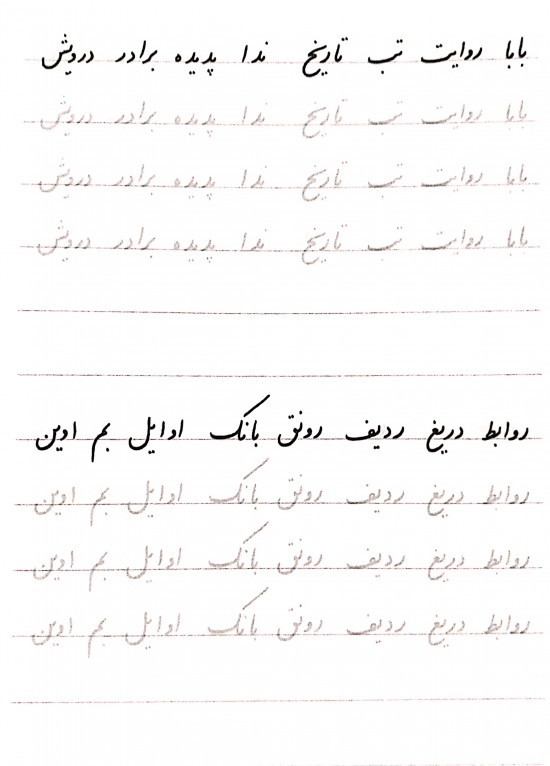 بابا روایت تب تاریخ ندا پدیده برادر درویش
بابا روایت تب تاریخ ندا پدیده برادر درویش
بابا روایت تب تاریخ ندا پدیده برادر درویش
بابا روایت تب تاریخ ندا پدیده برادر درویش
روابط دریغ ردیف رونق بانک اوایل بم اوین
روابط دریغ ردیف رونق بانک اوایل بم اوین
روابط دریغ ردیف رونق بانک اوایل بم اوین
روابط دریغ ردیف رونق بانک اوایل بم اوین